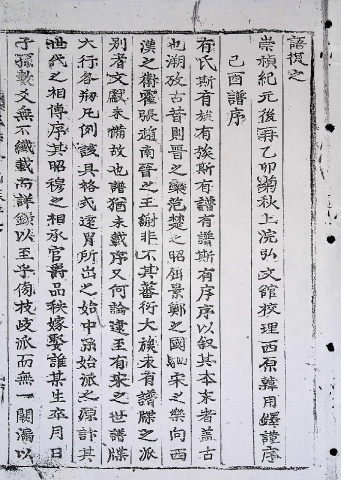 語復之
崇禎紀元後再乙卯菊秋上浣弘文館校理西原韓用鐸謹序
己酉譜序
有氏斯有族有族斯有譜有譜斯有序序以叙其本末者盖古
也溯攷古昔則晋之欒范楚之昭屈景鄭之國駟宋之樂向西
漢之衛霍張趙南晋之王謝非不其蕃衍大族未有譜牒之派
別者文獻未備故也譜猶未載序又何論逮至有宋之世譜牒
大行各刱凡例該具格式遠胃所出之始中系始派之源訃其
世代之相傳序其昭穆之相承官爵品秩嫁娶誰某生卒月日
子孫數爻無不纖載而詳錄以至乎傍枝岐派而無一闕漏以